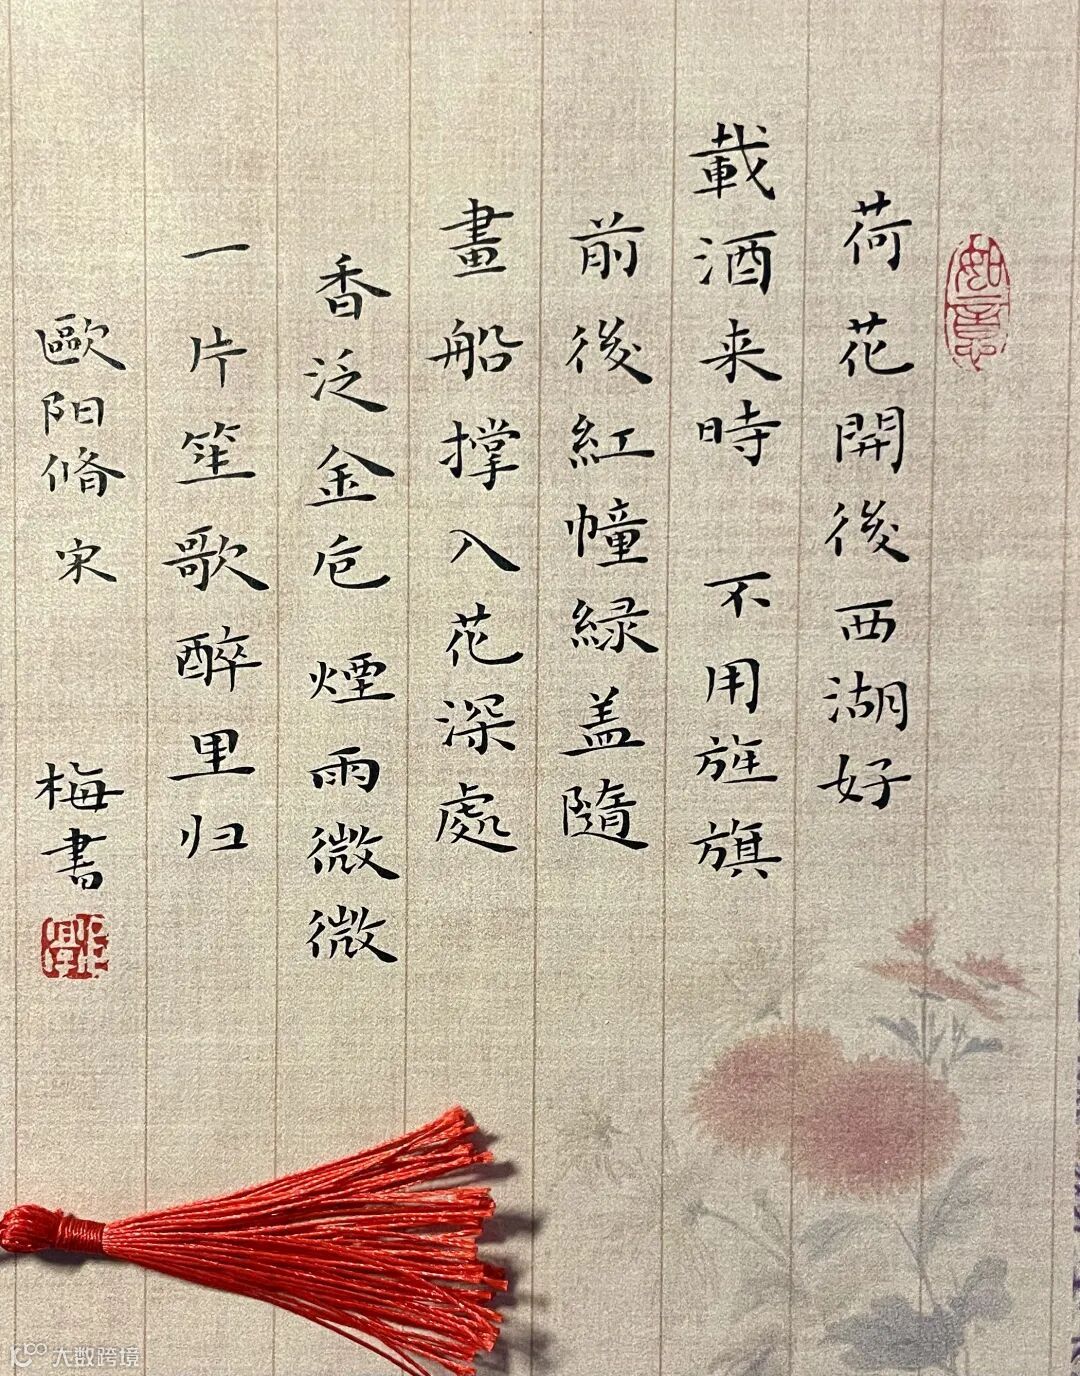 如意
荷花開後西湖好
載酒来時 不用旌旗
前後紅幢緑盖隨
畫船撑入花深處
香泛金卮 煙雨微微
一片笙歌醉里归
歐阳脩 宋 梅書
大数跨境